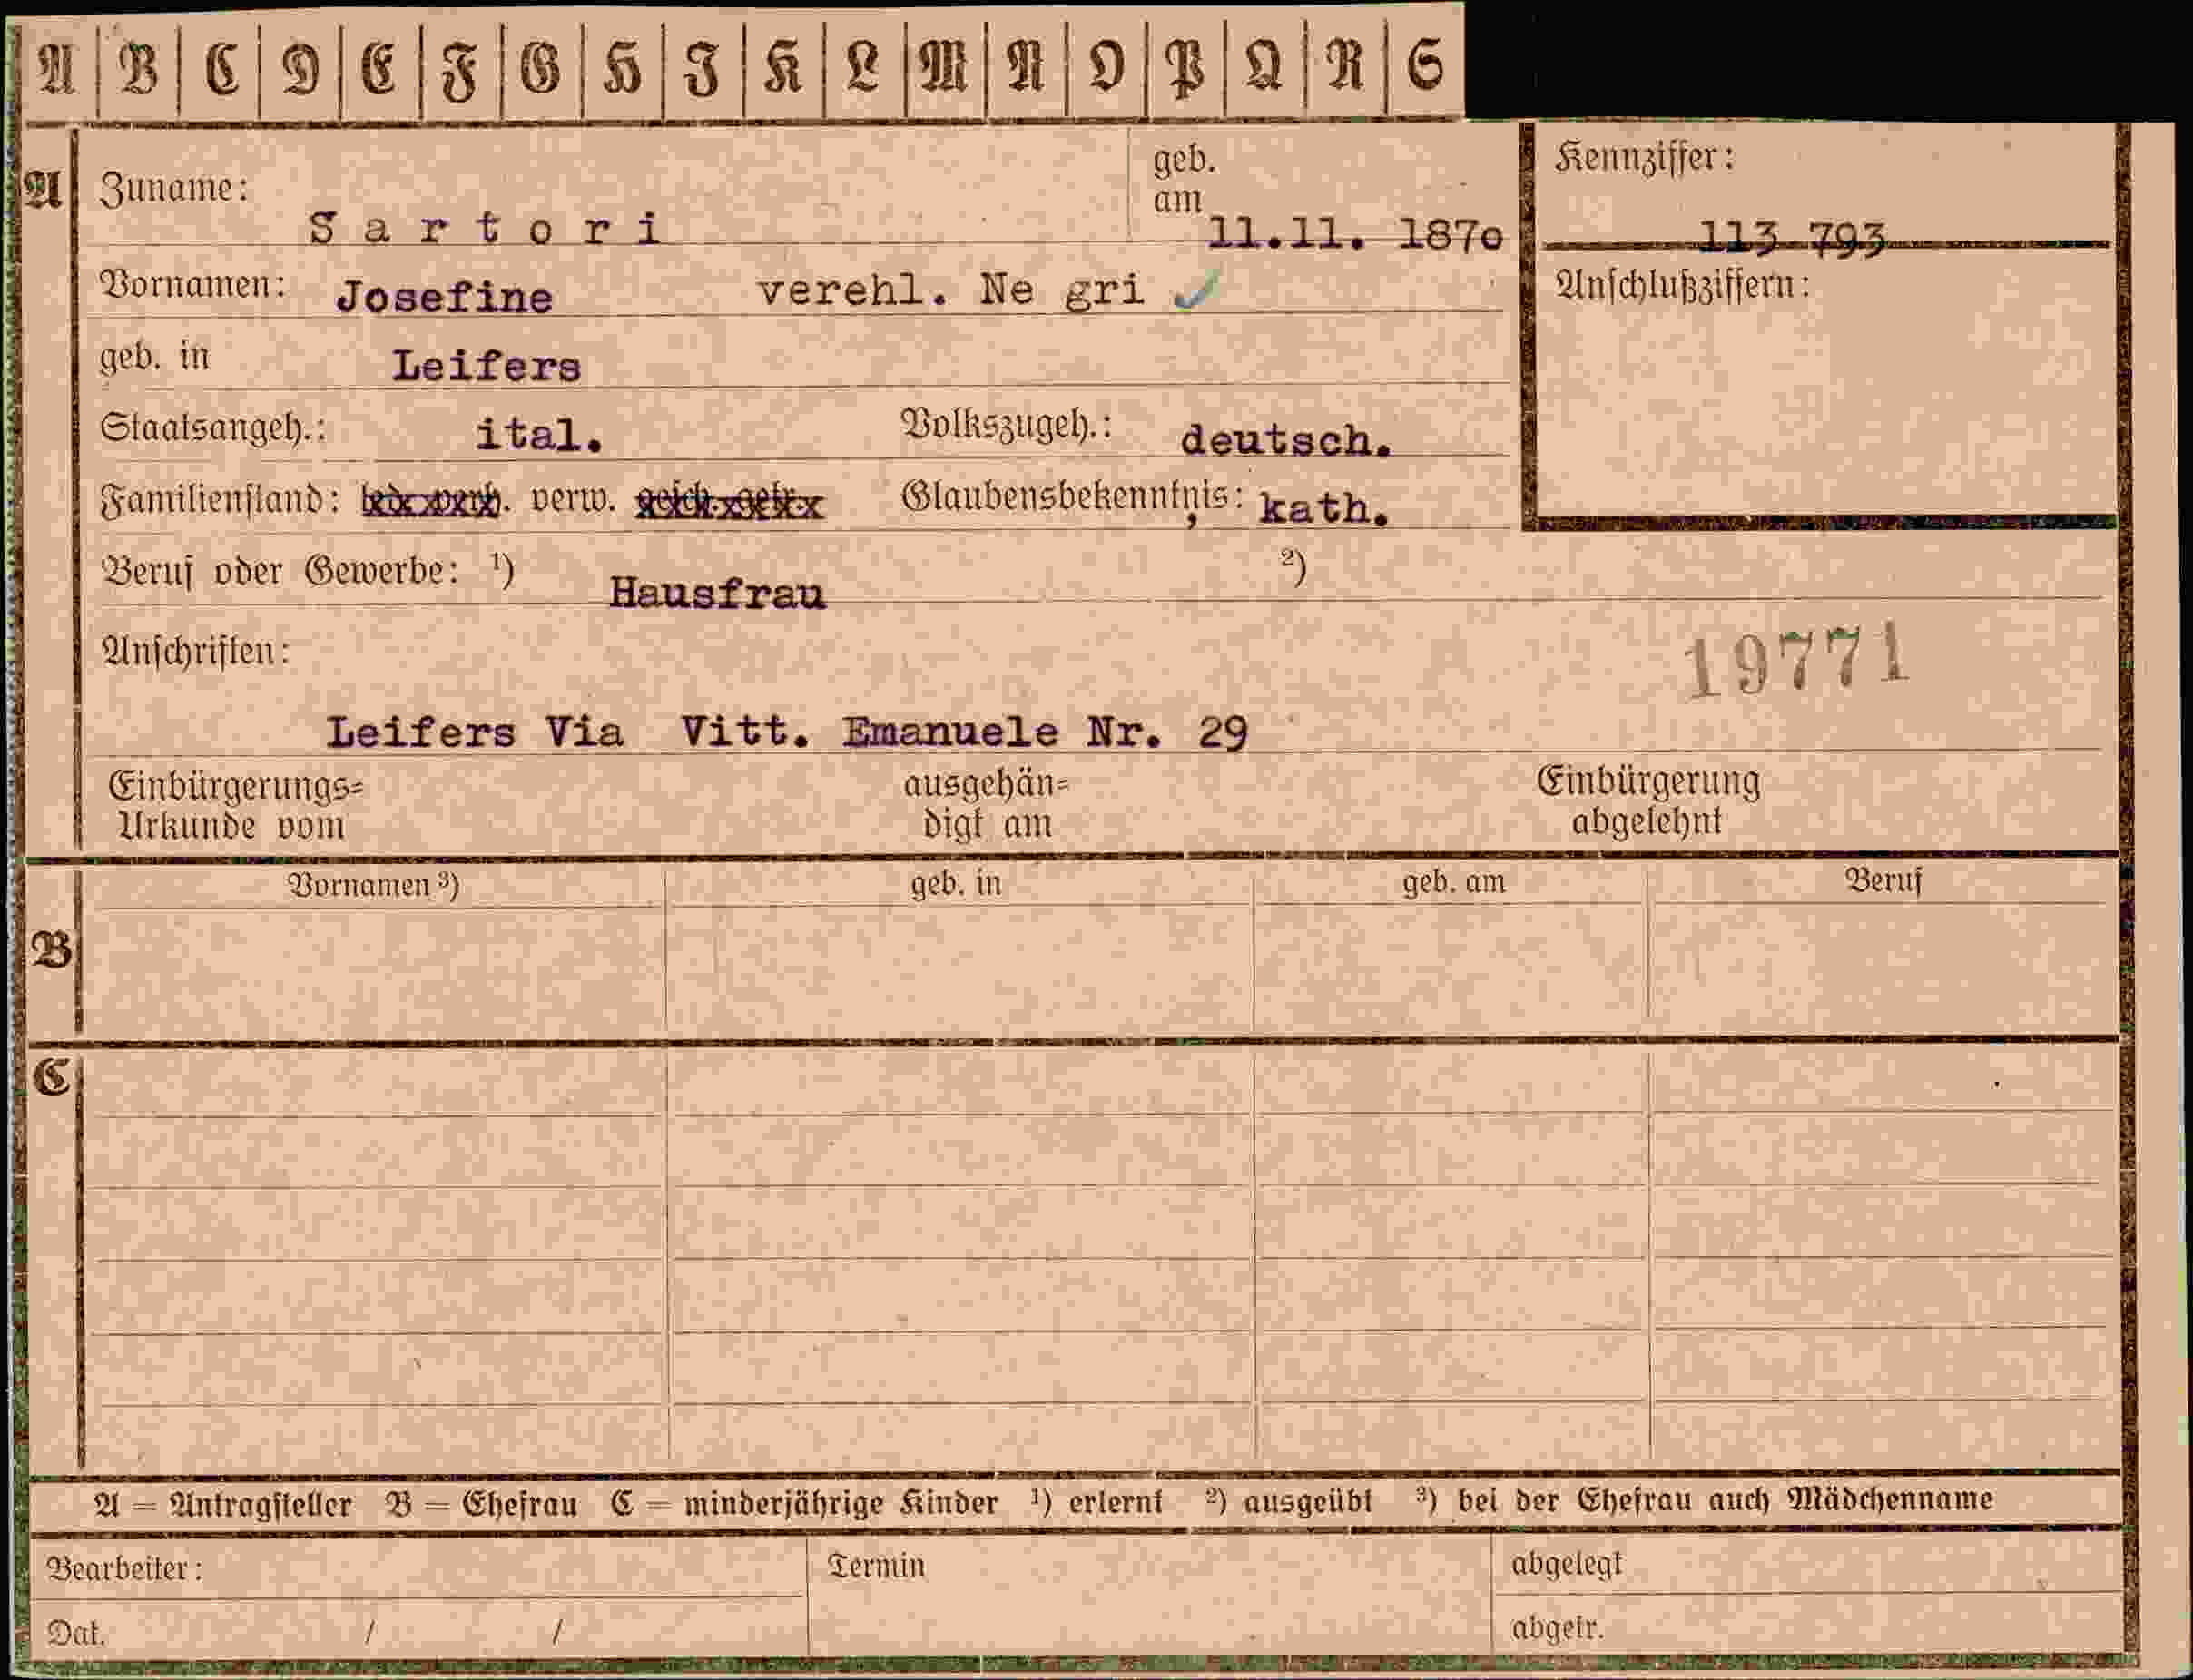 A B C D E F G H I K L M N O P Q R S
A Zuname: Sartori geb. am 11.11. 1870
Kennziffer: 113 793
Vornamen: Josefine verehl. Ne gri ✓
Anschlußziffern:
geb. in Leifers
Staatsangeh.: ital. Volkszugeh.: deutsch.
Familienstand: led. verh. verw. gesch. getr. Glaubensbekenntnis: kath.
Beruf oder Gewerbe: ¹) Hausfrau ²)
Anschriften:
19771
Leifers Via Vitt. Emanuele Nr. 29
Einbürgerungs= ausgehän= Einbürgerung
Urkunde vom digt am abgelehnt
Vornamen ³) geb. in geb. am Beruf
B
C
A = Antragsteller B = Ehefrau C = minderjährige Kinder ¹) erlernt ²) ausgeübt ³) bei der Ehefrau auch Mädchenname
Bearbeiter: Termin abgelegt
Dat. / / abgetr.